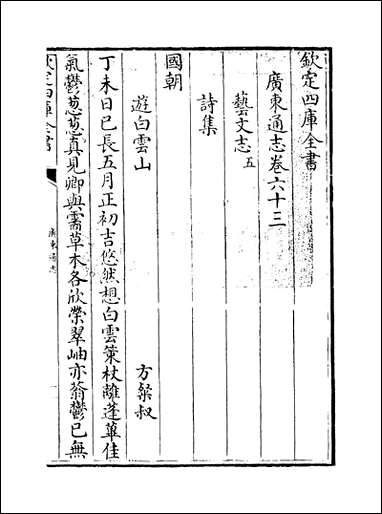 欽定四庫全書
廣東通志卷六十三
藝文志五
詩集
國朝
遊白雲山 方粲叔
丁未日巳長五月正初吉悠然想白雲䇿杖離蓬蓽佳
氣鬱葱葱真見卿與霱草木各欣榮翠岫亦蓊鬱巳無
欽定四庫全書
廣東通志